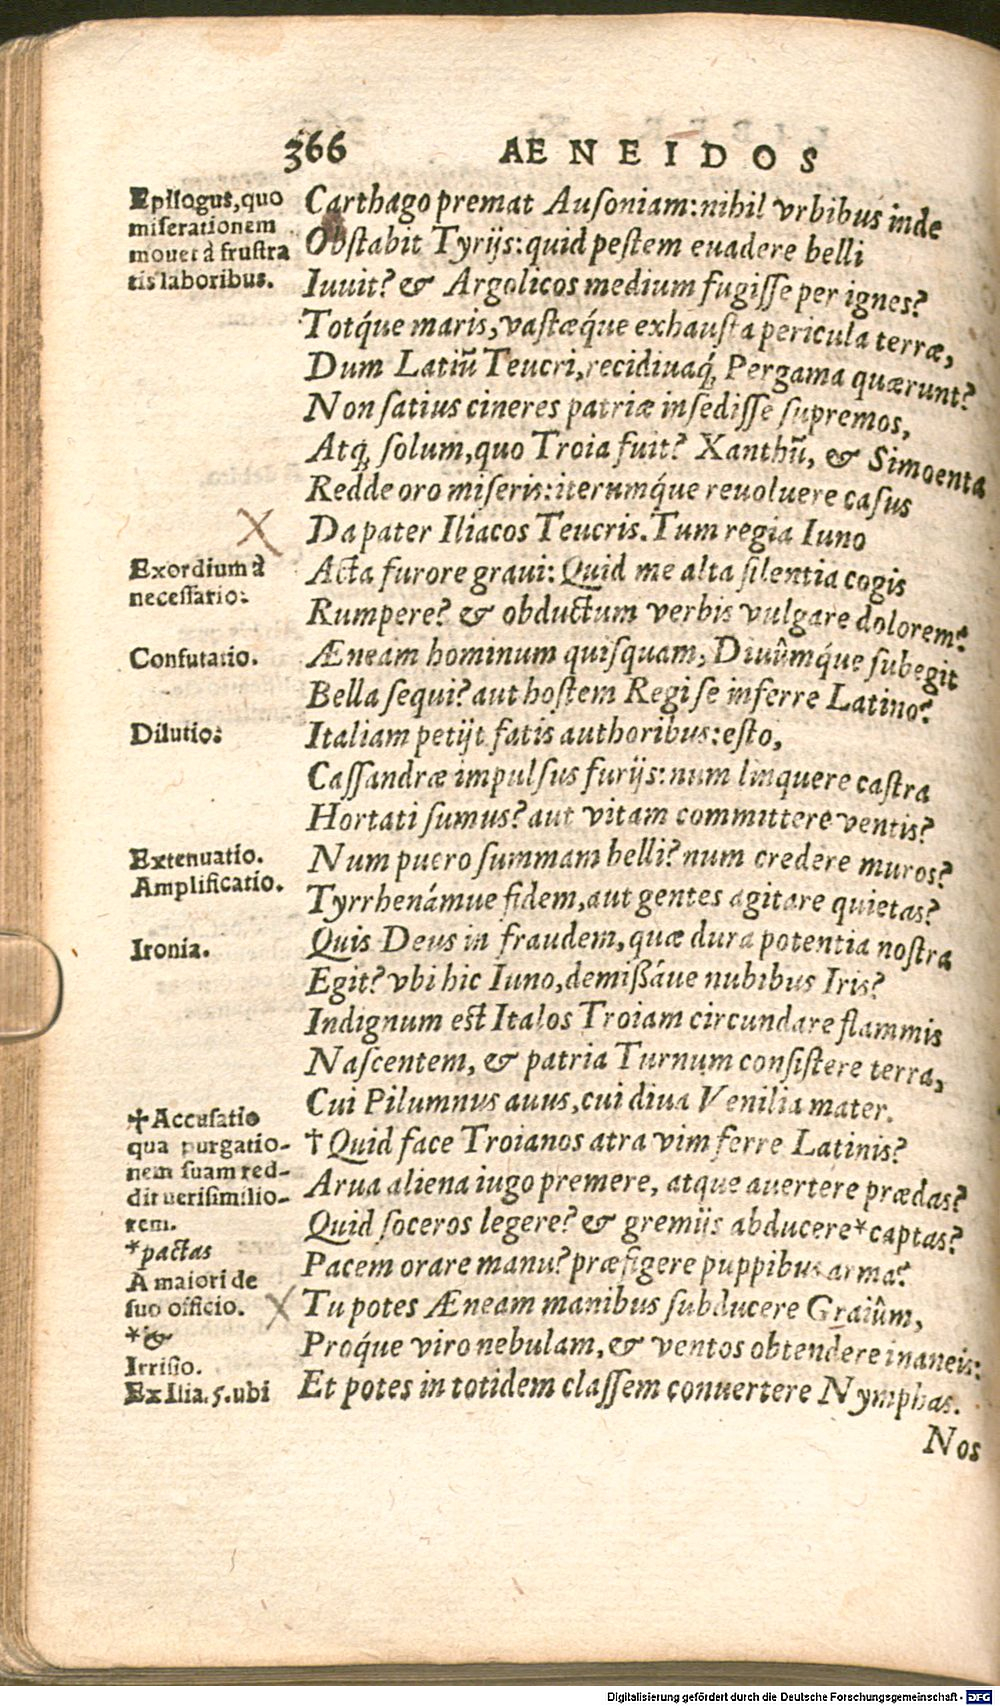 366 AENEIDOS
Epilogus, quo
miserationem
mouet à frustra
tis laboribus.
Carthago premat Ausoniam: nihil vrbibus inde
Obstabit Tyrijs: quid pestem euadere belli
Iuuit? & Argolicos medium fugisse per ignes?
Totq́ue maris, vastæq́ue exhausta pericula terræ,
Dum Latiū Teucri, recidiuaq́; Pergama quærunt?
Non satius cineres patriæ insedisse supremos,
Atq; solum, quo Troia fuit? Xanthū, & Simoenta
Redde oro miseris: iterumq́ue reuoluere casus
X Da pater Iliacos Teucris. Tum regia Iuno
Exordium à
necessario:
Acta furore graui: Quid me alta silentia cogis
Rumpere? & obductum verbis vulgare dolorem?
Confutatio.
Æneam hominum quisquam, Diuûmq́ue subegit
Bella sequi? aut hostem Regi se inferre Latino?
Dilutio:
Italiam petijt fatis authoribus: esto,
Cassandræ impulsus furijs: num linquere castra
Hortati sumus? aut vitam committere ventis?
Extenuatio.
Amplificatio.
Num puero summam belli? num credere muros?
Tyrrhenámue fidem, aut gentes agitare quietas?
Ironia.
Quis Deus in fraudem, quæ dura potentia nostra
Egit? vbi hic Iuno, demißáue nubibus Iris?
Indignum est Italos Troiam circundare flammis
Nascentem, & patria Turnum consistere terra,
Cui Pilumnus auus, cui diua Venilia mater.
✝ Accusatio
qua purgatio-
nem suam red-
dit uerisimilio-
rem.
*pactas
A maiori de
suo officio.
*&
Irrisio.
Ex Ilia. 5. ubi
† Quid face Troianos atra vim ferre Latinis?
Arua aliena iugo premere, atque auertere prædas?
Quid soceros legere? & gremijs abducere *captas?
Pacem orare manu? præfigere puppibus arma?
X Tu potes Æneam manibus subducere Graiûm,
Proq́ue viro nebulam, & ventos obtendere inaneis:
Et potes in totidem classem conuertere Nymphas.
Nos
Digitalisierung gefördert durch die Deutsche Forschungsgemeinschaft - DFG